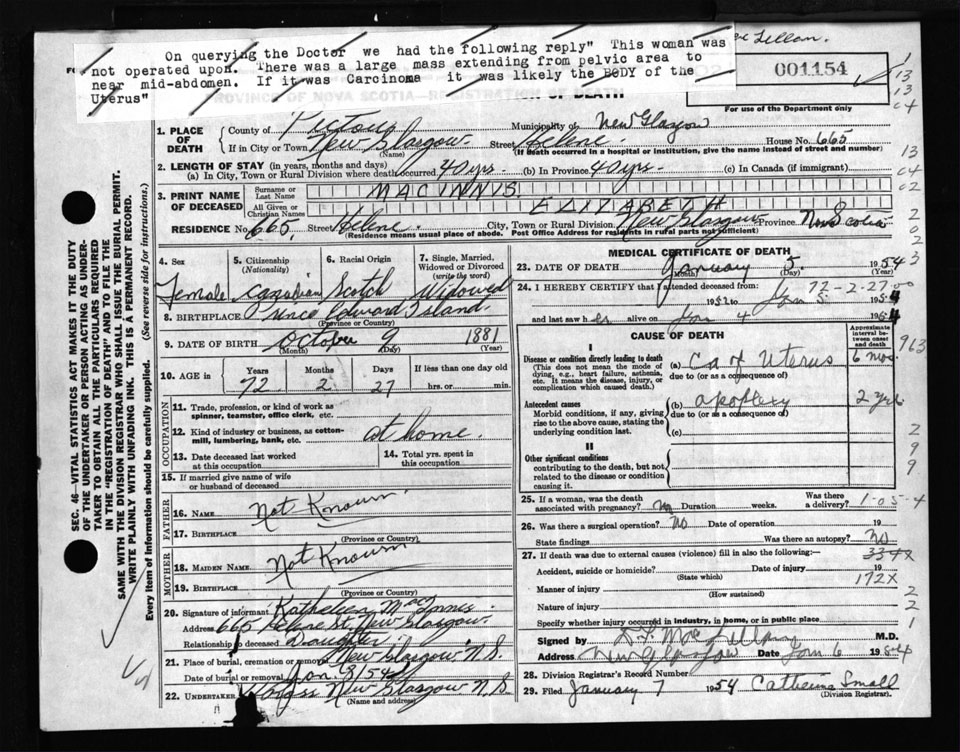 On querying the Doctor we had the following reply" This woman was
not operated upon. There was a large mass extending from pelvic area to
near mid-abdomen. If it was Carcinoma it was likely the BODY of the
Uterus"
Lellan.
001154
For use of the Department only
PROVINCE OF NOVA SCOTIA—REGISTRATION OF DEATH
1. PLACE OF DEATH
County of Pictou Municipality of New Glasgow
If in City or Town New Glasgow. (Name) Street Helene House No. 665
(If death occurred in a hospital or institution, give the name instead of street and number)
2. LENGTH OF STAY (in years, months and days)
(a) In City, Town or Rural Division where death occurred 40 yrs. (b) In Province 40 yrs. (c) In Canada (if immigrant)
3. PRINT NAME OF DECEASED
Surname or Last Name MACINNIS
All Given or Christian Names ELIZABETH
RESIDENCE No. 665, Street Helene. City, Town or Rural Division: New Glasgow Province Nova Scotia
(Residence means usual place of abode. Post Office Address for residents in rural parts not sufficient)
4. Sex Female
5. Citizenship (Nationality) Canadian
6. Racial Origin Scotch
7. Single, Married, Widowed or Divorced (write the word) Widowed
8. BIRTHPLACE Prince Edward Island.
(Province or Country)
9. DATE OF BIRTH October (Month) 9 (Day) 1881 (Year)
10. AGE in Years 72 Months 2 Days 27 If less than one day old hrs. or min.
OCCUPATION
11. Trade, profession, or kind of work as spinner, teamster, office clerk, etc.
12. Kind of industry or business, as cotton-mill, lumbering, bank, etc. at home.
13. Date deceased last worked at this occupation
14. Total yrs. spent in this occupation
15. If married give name of wife or husband of deceased
FATHER
16. NAME Not Known
17. BIRTHPLACE (Province or Country)
MOTHER
18. MAIDEN NAME Not Known
19. BIRTHPLACE (Province or Country)
20. Signature of informant Katheleen MacInnis.
Address 665 Helene St. New Glasgow.
Relationship to deceased Daughter
21. Place of burial, cremation or removal New Glasgow, N.S.
Date of burial or removal Jan. 8/54
22. UNDERTAKER New Glasgow N.S.
(Name and address)
MEDICAL CERTIFICATE OF DEATH
23. DATE OF DEATH January (Month) 5. (Day) 1954 (Year)
24. I HEREBY CERTIFY that I attended deceased from: 72-2-27-00
1952 to Jan 5. 1954
and last saw her alive on Jan 4 1954
CAUSE OF DEATH
Approximate interval between onset and death
I
Disease or condition directly leading to death (a) Ca of Uterus 6 mos.
(This does not mean the mode of dying, e.g., heart failure, asthenia, etc. It means the disease, injury, or complication which caused death.)
due to (or as a consequence of)
Antecedent causes (b) apoplexy 2 yrs
Morbid conditions, if any, giving rise to the above cause, stating the underlying condition last.
due to (or as a consequence of)
(c)
II
Other significant conditions contributing to the death, but not related to the disease or condition causing it.
25. If a woman, was the death associated with pregnancy? No Duration weeks. Was there a delivery? 1-05-4
26. Was there a surgical operation? No Date of operation 19
State findings Was there an autopsy? No
27. If death was due to external causes (violence) fill in also the following:— 334x
Accident, suicide or homicide? (State which) Date of injury 19
172X
Manner of injury (How sustained)
Nature of injury
Specify whether injury occurred in industry, in home, or in public place
Signed by M.D.
Address New Glasgow Date Jan 6 1954
28. Division Registrar's Record Number
29. Filed January 7 1954 Catherine Small
(Division Registrar).
SEC. 46—VITAL STATISTICS ACT MAKES IT THE DUTY
OF THE UNDERTAKER OR PERSON ACTING AS UNDER-
TAKER TO OBTAIN ALL THE PARTICULARS REQUIRED
IN THE "REGISTRATION OF DEATH" AND TO FILE THE
SAME WITH THE DIVISION REGISTRAR WHO SHALL ISSUE THE BURIAL PERMIT.
WRITE PLAINLY WITH UNFADING INK. THIS IS A PERMANENT RECORD.
Every item of information should be carefully supplied. (See reverse side for instructions.)
1
13
13
04
13
04
02
2
02
3
913
2
9
9
2
2
1